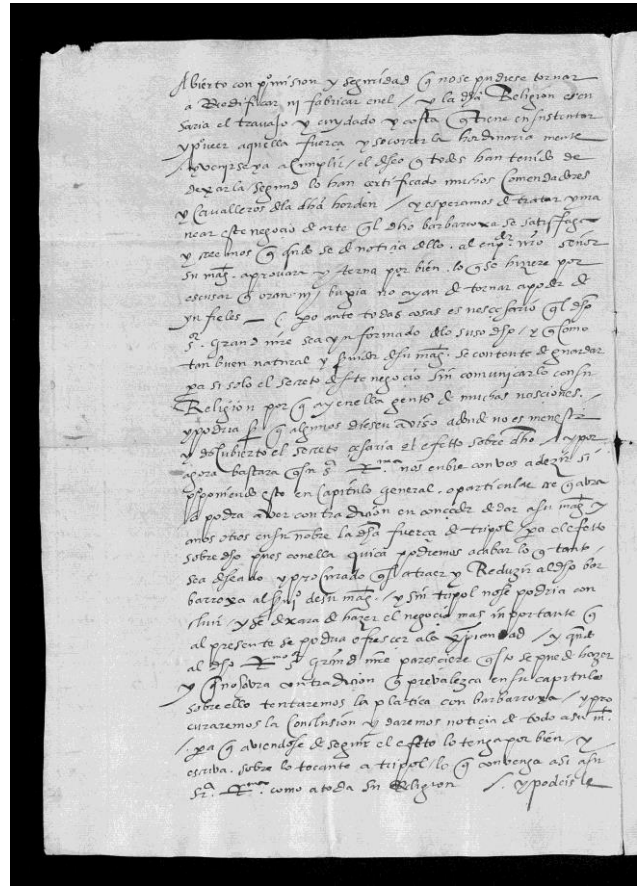 Abierto con pmision y seguridad q nose pudiese tornar
a Reedificar ni fabricar enel / y la dha Religion escu
saria el travajo y cuydado y costa q tiene en sustentar
y pveer aquella fuerça y socorrerla hordinaria mente
/ y venirseya a Cumplir / el deseo q todos han tenido de
dexarla / segund lo han certificado muchos Comendadores
y Cavalleros dla dha horden / y esperamos d tratar y ma
near este negocio de arte ql dho barbarroxa se satisfaga
y creemos q qndo se dé noticia dello al empdr nro señor
su mag. aprovara y terna por bien lo q se hiziere por
escusar q oran ni bugia no ayan de tornar a poder de
ynfieles — po ante todas cosas es nescesario ql dho
s.r grand mre sea ynformado dlo suso dho / y q como
tan buen natural y svidor dsu mag. se contente d guardar
pa si solo el secreto dste negocio sin comunicarlo con su
Religion por q ay en ella gente de muchas nasciones
y podria ser q algunos diesen aviso adonde no es menester
y descubierto el secreto cesaria el efetto sobre dho / y por
agora bastara q su s.a R.ma nos enbie con vos a dezir si
pponiendo esto en Capitulo general o particular
podra aver contradicion en conceder d dar a su mag. y
a nos otros en su nobre la dha fuerça de tripol pa el efetto
sobre dho pues con ella quiça podremos acabar lo q tanto
sea deseado y procurado q es atraer y Reduzir al dho bar
barroxa al svi.o de su mag. / y sin tripol nose podria con
cluir / y se dexara d hazer el negocio mas inportante q
al presente se podria ofrescer ala xpiandad / y qndo
al dho R.mo s.r grand mre paresciere q esto se puede hazer
y q no avra contradicion q prevalezca en su capitulo
sobre ello tentaremos la platica con barbarroxa / y pro
curaremos la Conclusion y daremos noticia de todo a su m.
/ pa q aviendose de seguir el efeto lo tenga por bien / y
escriva sobre lo tocante a tripol / lo q convenga asi a su
s.a R.ma como a toda su Religion / y podeis le